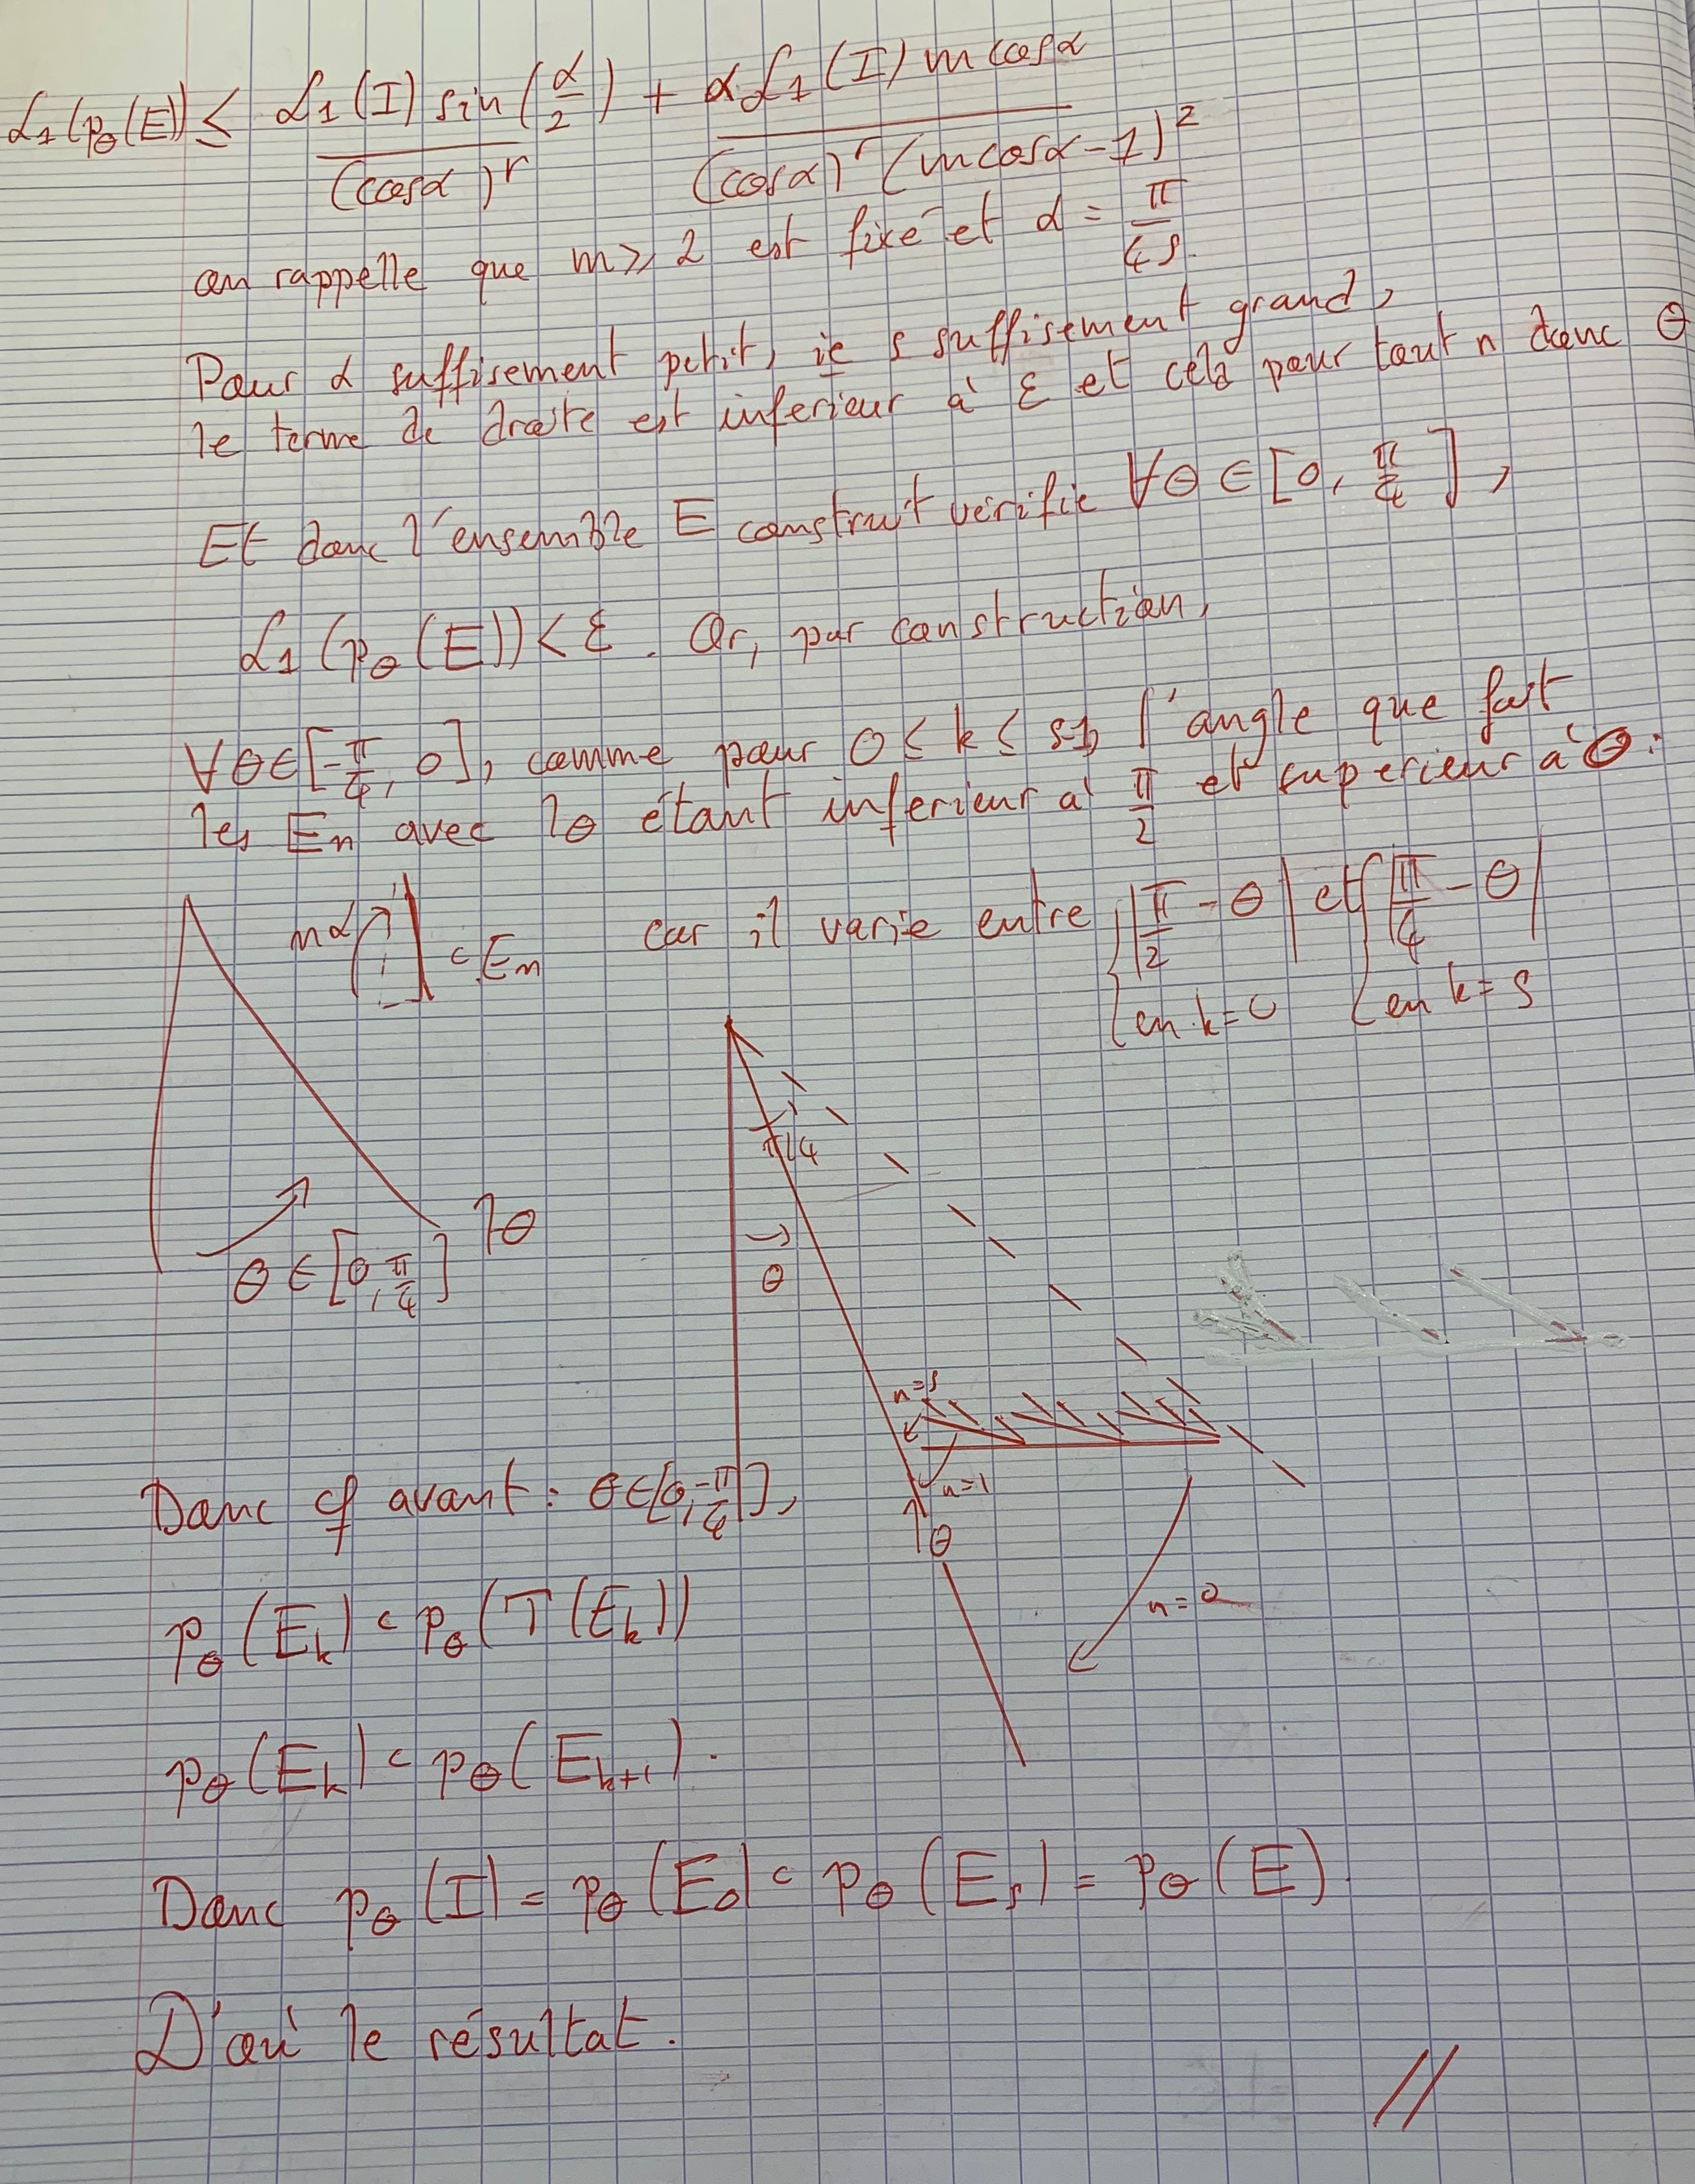 L₁(p_θ(E)) ≤ L₁(I) sin(α/2) / (cosα)^r + αL₁(I) m cosα / (cosα)^r (m cosα - 1)²
on rappelle que m ⩾ 2 est fixé et α = π/4s.
Pour α suffisement petit, ie s suffisement grand,
le terme de droite est inferieur à ε et cela pour tout n donc θ
Et donc l'ensemble E construit vérifie ∀θ ∈ [0, π/4],
L₁(p_θ(E)) < ε. Or, par construction,
∀θ∈[-π/4, 0], comme pour 0 ≤ k ≤ s-1, l'angle que fait
les En avec lθ étant inferieur à π/2 et superieur à θ:
car il varie entre |π/2 - θ| et |π/4 - θ|
en k=0 en k=s
mα ⊂ En
π/4
θ
θ ∈ [0, π/4] lθ
n=s
n=1
lθ
n=0
Donc cf avant: θ∈[0, -π/4],
p_θ(E_k) ⊂ p_θ(T(E_k))
p_θ(E_k) ⊂ p_θ(E_{k+1}).
Donc p_θ(I) = p_θ(E₀) ⊂ p_θ(E_s) = p_θ(E)
D'où le résultat.
//